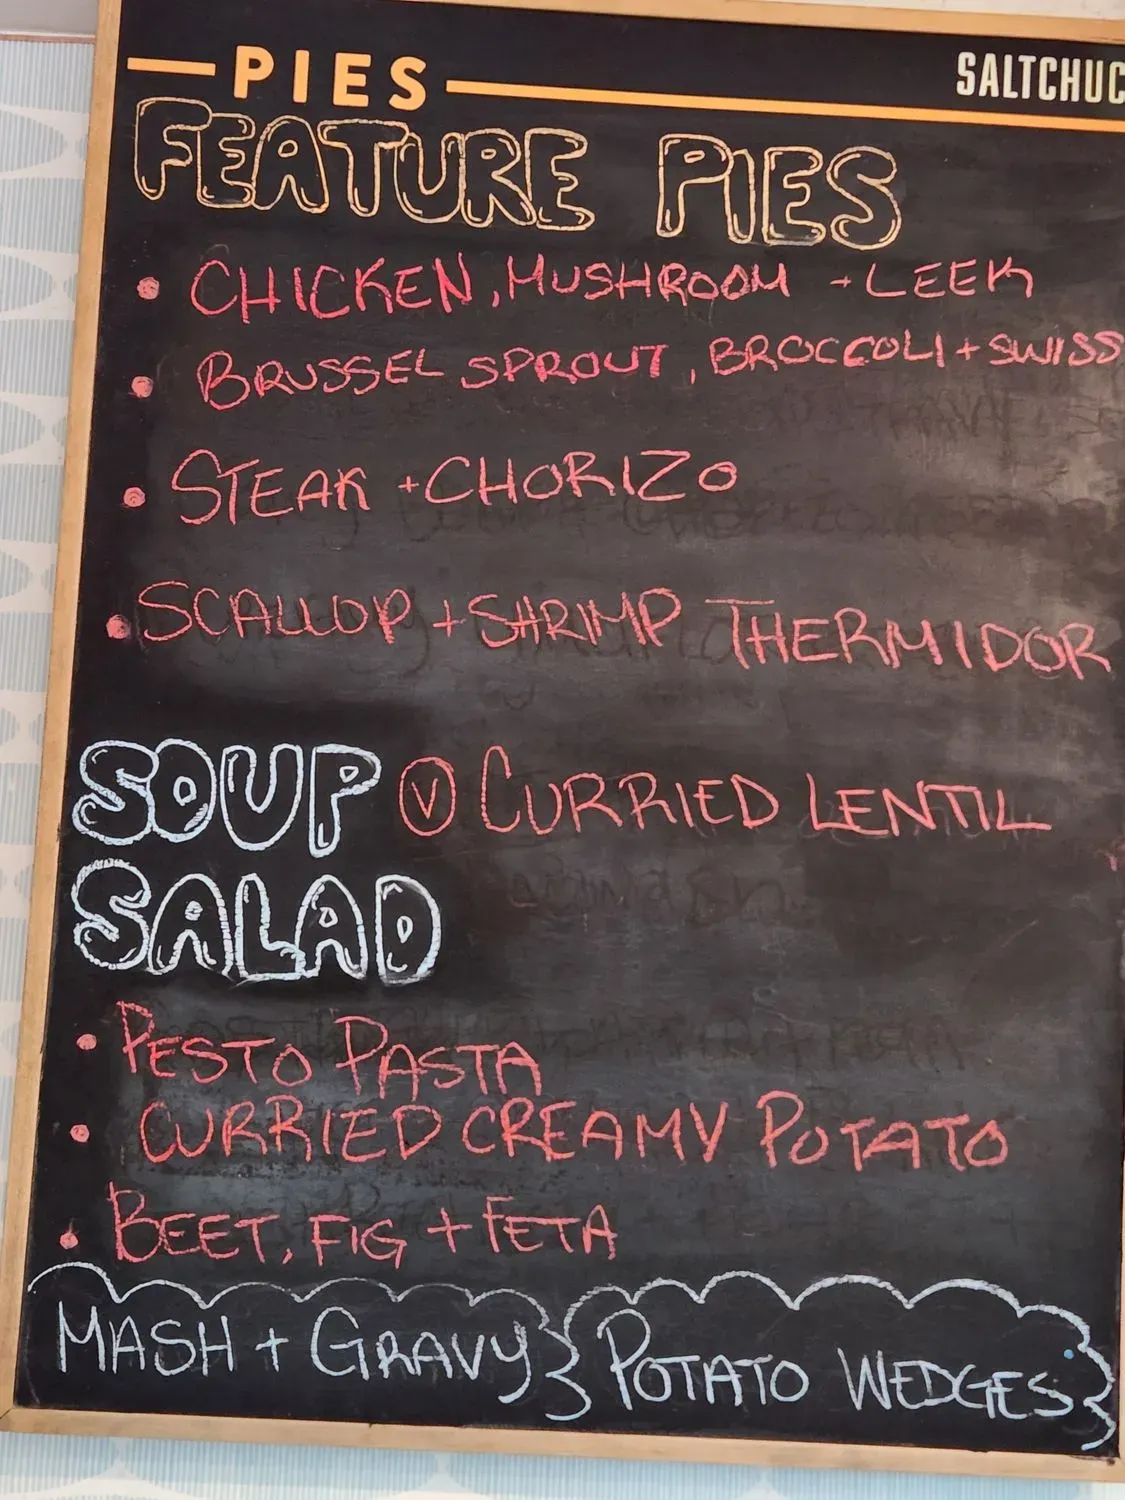 PIES SALTCHUC
FEATURE PIES
• CHICKEN, MUSHROOM + LEEK
• BRUSSEL SPROUT, BROCCOLI + SWISS
• STEAK + CHORIZO
• SCALLOP + SHRIMP THERMIDOR
SOUP Ⓥ CURRIED LENTIL
SALAD
• PESTO PASTA
• CURRIED CREAMY POTATO
• BEET, FIG + FETA
MASH + GRAVY POTATO WEDGES